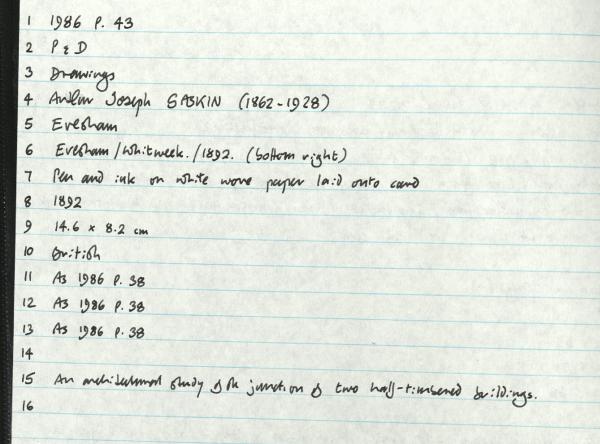 1 1986 P. 43
2 P & D
3 Drawings
4 Arthur Joseph GASKIN (1862-1928)
5 Evesham
6 Evesham/Whitweek./1892. (bottom right)
7 Pen and ink on white wove paper laid onto card
8 1892
9 14.6 x 8.2 cm
10 British
11 As 1986 P. 38
12 As 1986 P. 38
13 As 1986 P. 38
14
15 An architectural study of the junction of two half-timbered buildings.
16